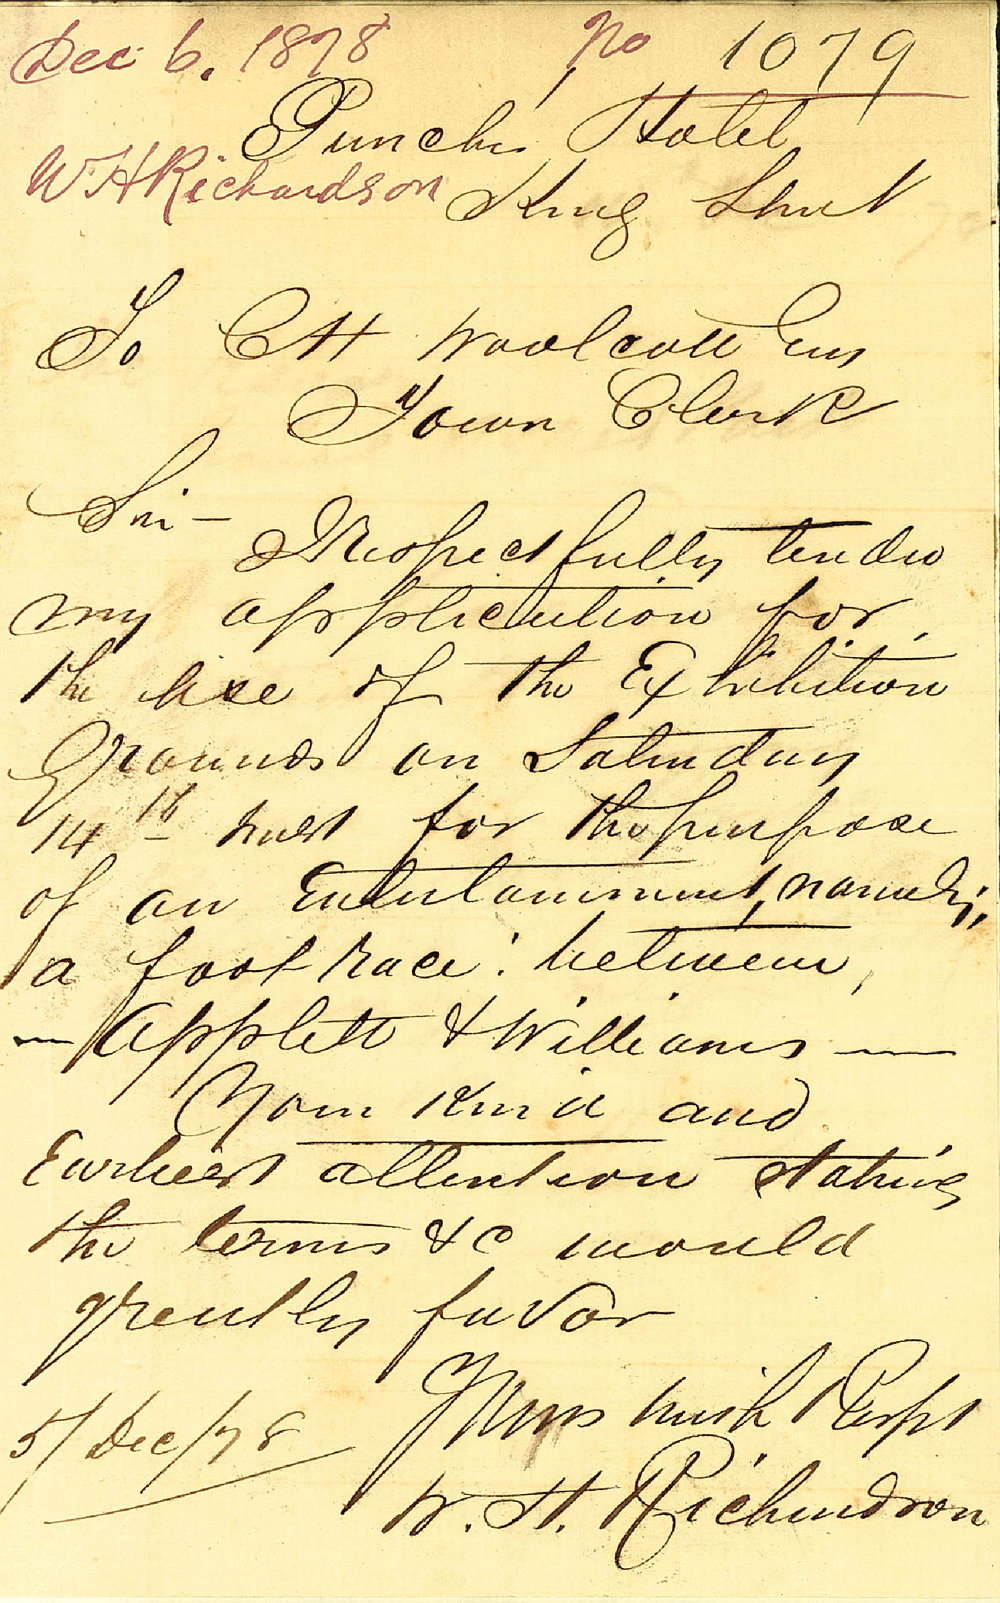 Dec 6. 1878 No 1079
Punchs Hotel
W H Richardson
King Street
To C H Woolcott Esq
Town Clerk
Sir —
I Respectfully tender
my application for,
the use of the Exhibition
Grounds on Saturday
14th inst for the purpose
of an Entertainment, namely;
a foot Race: between,
— Applett & Williams —
Your Kind and
Earliest attention stating
the terms &c would
greatly favor
Yours with Respt
5/Dec/78
W. H. Richardson